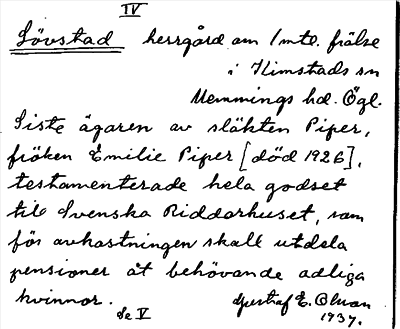 IV
Lövstad herrgård om 1 mtl. frälse
i Kimstads sn
Memmings hd. Ögl.
Siste ägaren av släkten Piper,
fröken Emilie Piper [död 1926],
testamenterade hela godset
till Svenska Riddarhuset, som
för avkastningen skall utdela
pensioner åt behövande adliga
kvinnor. Gustaf E.
Se V 1937.